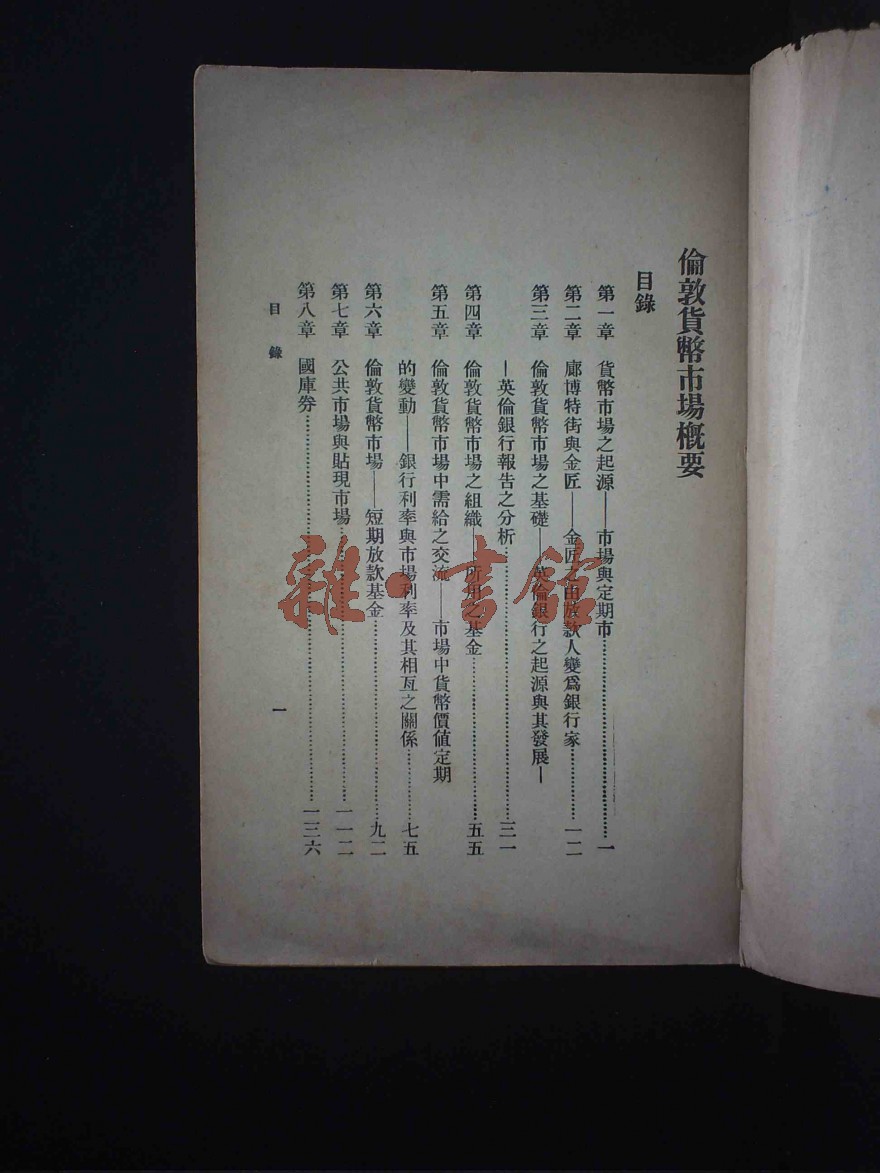 倫敦貨幣市場概要
目錄
第一章 貨幣市場之起源——市場與定期市……一
第二章 廊博特街與金匠——金匠之由放款人變爲銀行家……一二
第三章 倫敦貨幣市場之基礎——英倫銀行之起源與其發展—
—英倫銀行報告之分析……三一
第四章 倫敦貨幣市場之組織——所用之基金……五五
第五章 倫敦貨幣市場中需給之交流——市場中貨幣價值定期
的變動——銀行利率與市場利率及其相互之關係……七五
第六章 倫敦貨幣市場——短期放款基金……九二
第七章 公共市場與貼現市場……一一二
第八章 國庫券……一三六
目錄
一
雜·書館